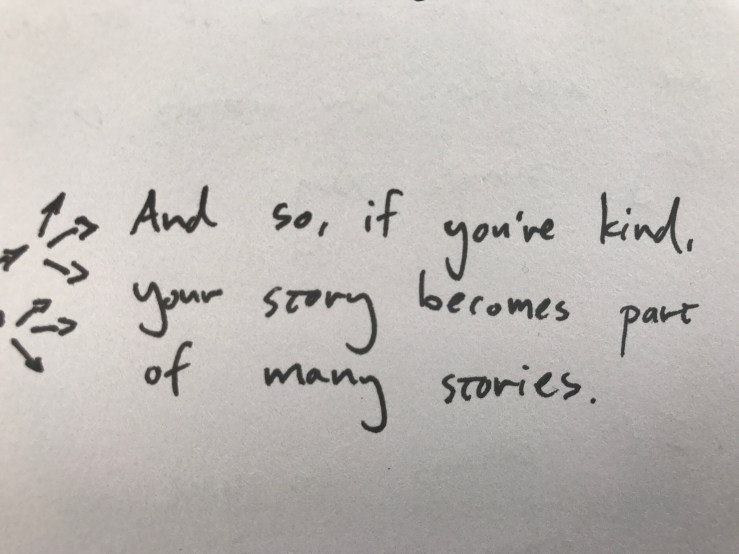 And so, if you're kind,
your story becomes part
of many stories.